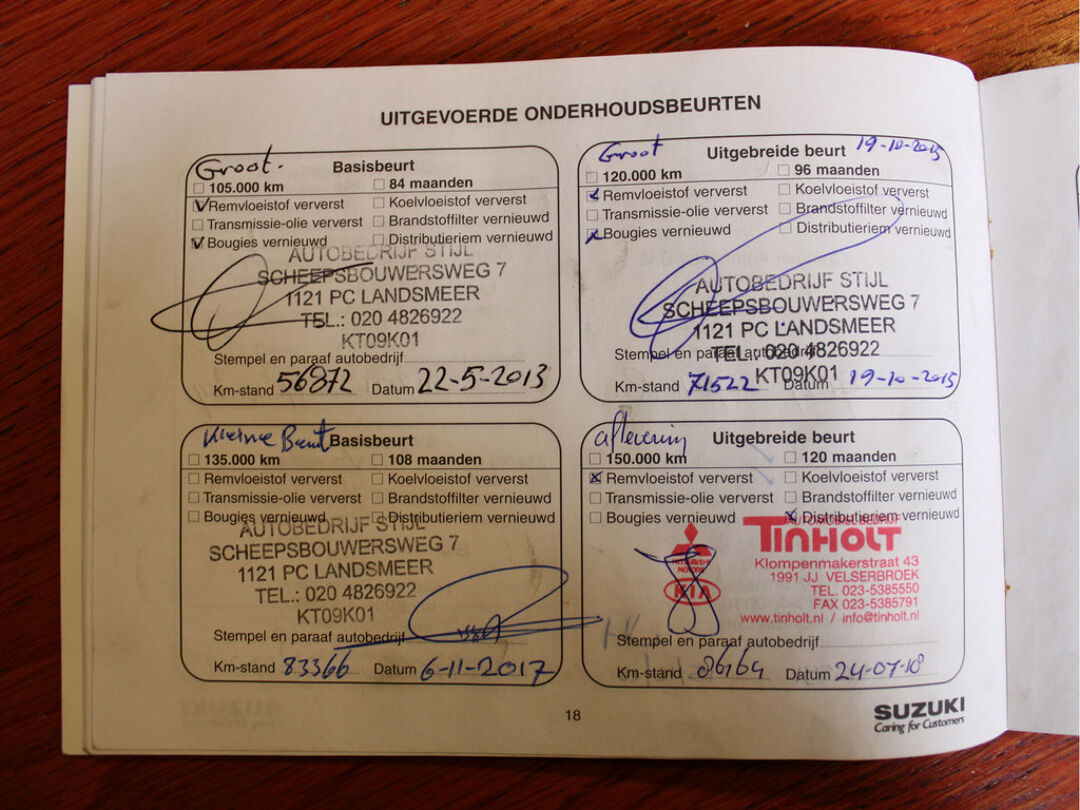 UITGEVOERDE ONDERHOUDSBEURTEN
Groot.
Basisbeurt
105.000 km 84 maanden
Remvloeistof ververst Koelvloeistof ververst
Transmissie-olie ververst Brandstoffilter vernieuwd
Bougies vernieuwd Distributieriem vernieuwd
AUTOBEDRIJF STIJL
SCHEEPSBOUWERSWEG 7
1121 PC LANDSMEER
TEL.: 020 4826922
KT09K01
Stempel en paraaf autobedrijf
Km-stand 56872 Datum 22-5-2013
Groot Uitgebreide beurt 19-10-2015
120.000 km 96 maanden
Remvloeistof ververst Koelvloeistof ververst
Transmissie-olie ververst Brandstoffilter vernieuwd
Bougies vernieuwd Distributieriem vernieuwd
AUTOBEDRIJF STIJL
SCHEEPSBOUWERSWEG 7
1121 PC LANDSMEER
TEL.: 020 4826922
KT09K01
Stempel en paraaf autobedrijf
Km-stand 71522 Datum 19-10-2015
Kleine Beurt Basisbeurt
135.000 km 108 maanden
Remvloeistof ververst Koelvloeistof ververst
Transmissie-olie ververst Brandstoffilter vernieuwd
Bougies vernieuwd Distributieriem vernieuwd
AUTOBEDRIJF STIJL
SCHEEPSBOUWERSWEG 7
1121 PC LANDSMEER
TEL.: 020 4826922
KT09K01
Stempel en paraaf autobedrijf
Km-stand 83366 Datum 6-11-2017
aflevering Uitgebreide beurt
150.000 km 120 maanden
Remvloeistof ververst Koelvloeistof ververst
Transmissie-olie ververst Brandstoffilter vernieuwd
Bougies vernieuwd Distributieriem vernieuwd
AUTOMOBIELBEDRIJF
TINHOLT
MITSUBISHI
MOTORS
KIA
Klompenmakerstraat 43
1991 JJ VELSERBROEK
TEL. 023-5385550
FAX 023-5385791
www.tinholt.nl / info@tinholt.nl
Stempel en paraaf autobedrijf
Km-stand 86164 Datum 24-07-18
18
SUZUKI
Caring for Customers